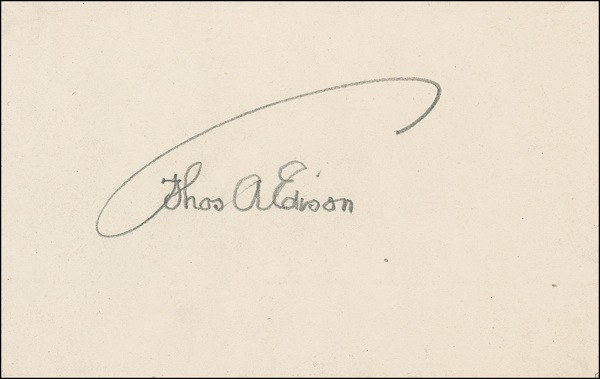 Thos A Edison